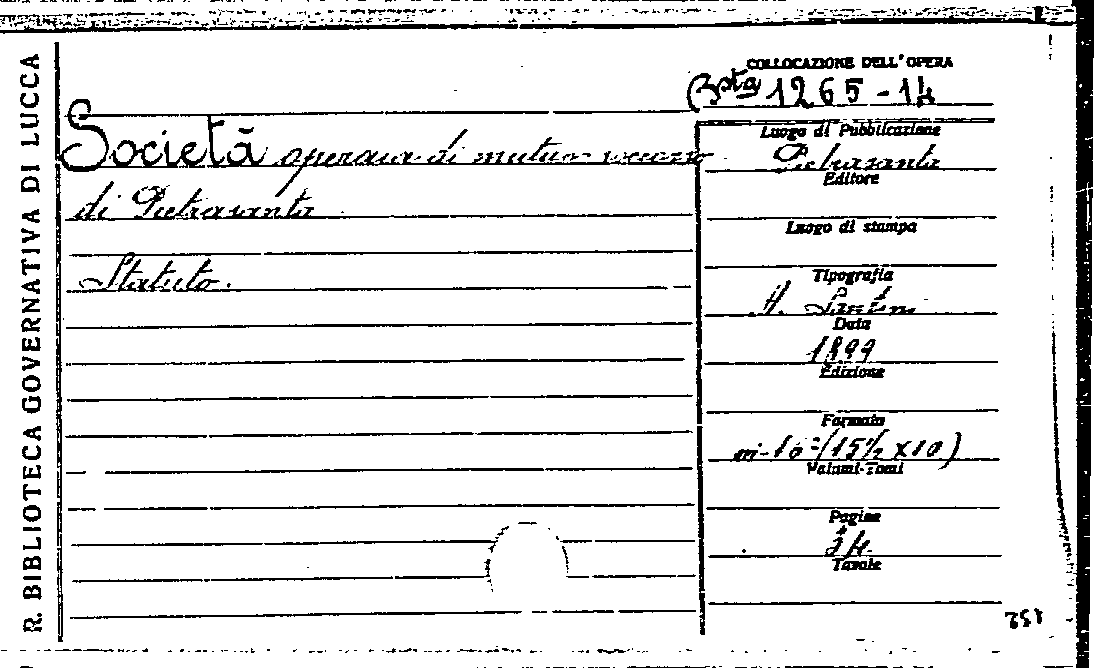 R. BIBLIOTECA GOVERNATIVA DI LUCCA
COLLOCAZIONE DELL'OPERA
Bsta 1265-14
Società operaia di mutuo soccorso
di Pietrasanta
Statuto.
Luogo di Pubblicazione
Pietrasanta
Editore
Luogo di stampa
Tipografia
A. Santini
Data
1899
Edizione
Formato
in-16º (15½ x 10)
Volumi-Tomi
Pagine
Tavole
152